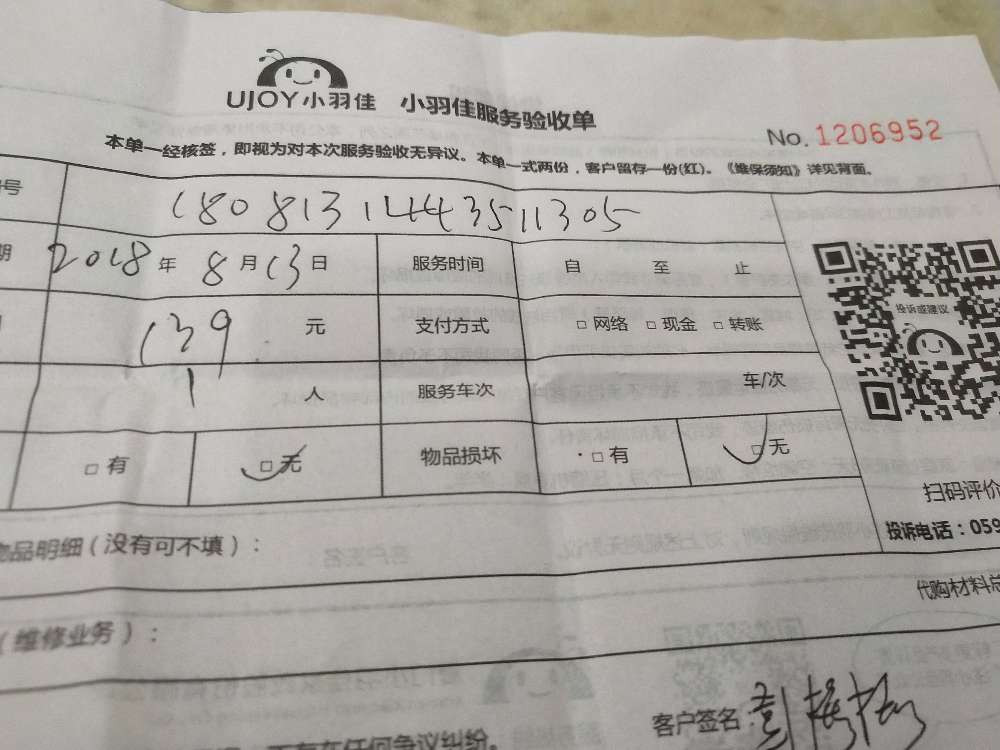 UJOY小羽佳 小羽佳服务验收单
No. 1206952
本单一经核签，即视为对本次服务验收无异议。本单一式两份，客户留存一份(红)。《维保须知》详见背面。
号 180813144351305
期 2018 年 8 月 13 日 服务时间 自 至 止
139 元 支付方式 □ 网络 □ 现金 □ 转账
投诉或建议
1 人 服务车次 车/次
□ 有 □ 无 物品损坏 □ 有 □ 无
扫码评价
物品明细（没有可不填）：
投诉电话：059
代购材料总
（维修业务）：
客户签名：
存在任何争议纠纷。